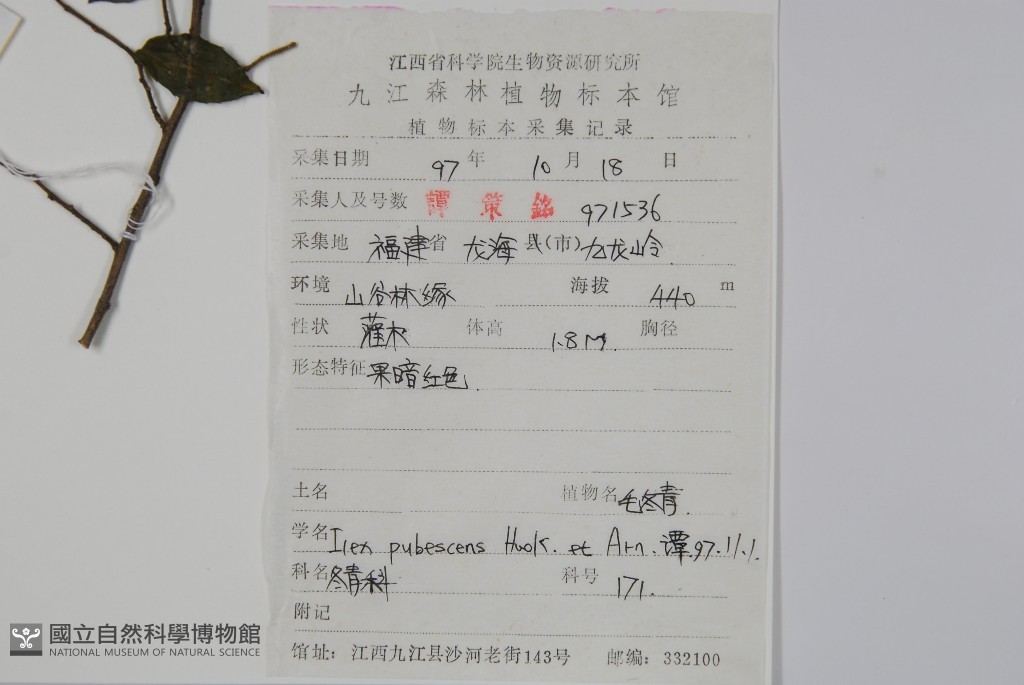 江西省科学院生物资源研究所
九江森林植物标本馆
植物标本采集记录
采集日期 97 年 10 月 18 日
采集人及号数 譚策銘 971536
采集地 福建省 龙海县(市)九龙岭.
环境 山谷林缘 海拔 440 m
性状 灌木 体高 1.8M. 胸径
形态特征 果暗红色.
土名 植物名 毛冬青.
学名 Ilex pubescens Hook. et Arn. 谭.97.11.1.
科名 冬青科 科号 171.
附记
馆址：江西九江县沙河老街143号 邮编：332100
國立自然科學博物館
NATIONAL MUSEUM OF NATURAL SCIENCE